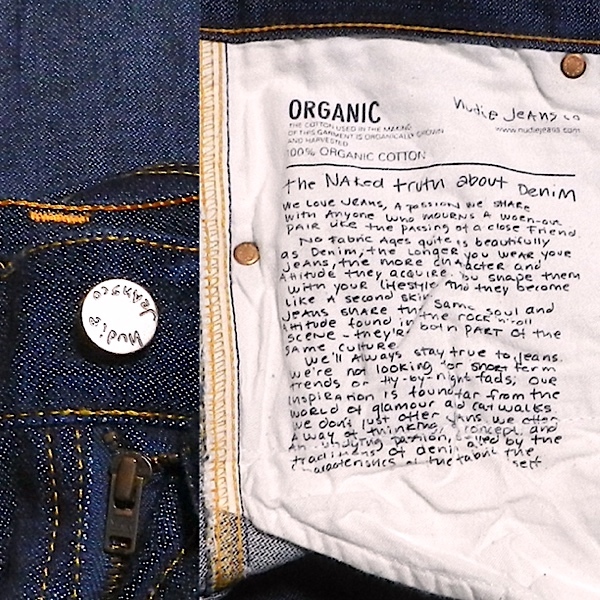 ORGANIC
THE COTTON USED IN THE MAKING
OF THIS GARMENT IS ORGANICALLY GROWN
AND HARVESTED
100% ORGANIC COTTON
Nudie Jeans co
www.nudiejeans.com
the NAked truth about Denim
We love Jeans, A passion we share
with Anyone who mourns a worn-out
pair like the passing of a close friend.
No Fabric Ages quite as beautifully
as Denim, the longer you wear your
Jeans, the more character and
Attitude they acquire. You shape them
with your lifestyle and they become
like a second skin.
Jeans share the same soul and
Attitude found in the rock'n'roll
scene - they're both part of the
same culture.
We'll Always stay true to Jeans.
We're not looking for short term
trends or fly-by-night fads; Our
inspiration is found far from the
world of glamour and catwalks.
We don't just offer jeans. We offer
A way of thinking, concept and
An undying passion, by the
traditions of denim the
characteristics of the fabric itself
Nudie
Jeans co